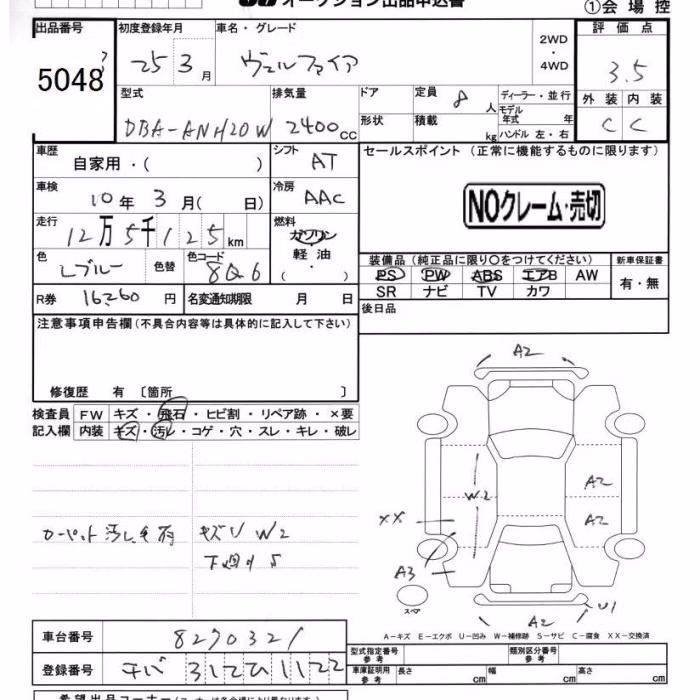 オークション出品申込書
①会場控
出品番号 初度登録年月 車名・グレード 2WD・4WD 評価点
5048 25 3月 ヴェルファイア 3.5
型式 排気量 ドア 定員 8人 ディーラー・並行 外装 内装
DBA-ANH20W 2400cc 形状 積載 kg モデル年式 年 ハンドル 左・右 C C
車歴 自家用・( ) シフト AT セールスポイント(正常に機能するものに限ります)
車検 10年 3月( 日) 冷房 AAC NOクレーム・売切
走行 12万5千125km 燃料 ガソリン 軽油・( )
色 Lブルー 色替 色コード 8Q6 装備品(純正品に限り○をつけてください) 新車保証書
PS PW ABS エアB AW 有・無
R券 16260円 名変通知期限 月 日 SR ナビ TV カワ
注意事項申告欄(不具合内容等は具体的に記入して下さい) 後日品
修復歴 有 〔箇所 〕
検査員 FW キズ・飛石・ヒビ割・リペア跡・×要
記入欄 内装 キズ・汚レ・コゲ・穴・スレ・キレ・破レ
A2
W2
A2
A2
XX
A3
スペア
A2
U1
カーペット汚レ キズU W2
下廻りS
A-キズ E-エクボ U-凹み W-補修跡 S-サビ C-腐食 XX-交換済
車台番号 8270321
型式指定番号 参考 類別区分番号 参考
登録番号 チバ 312ひ1122
車庫証明用 参考 長さ cm 幅 cm 高さ cm